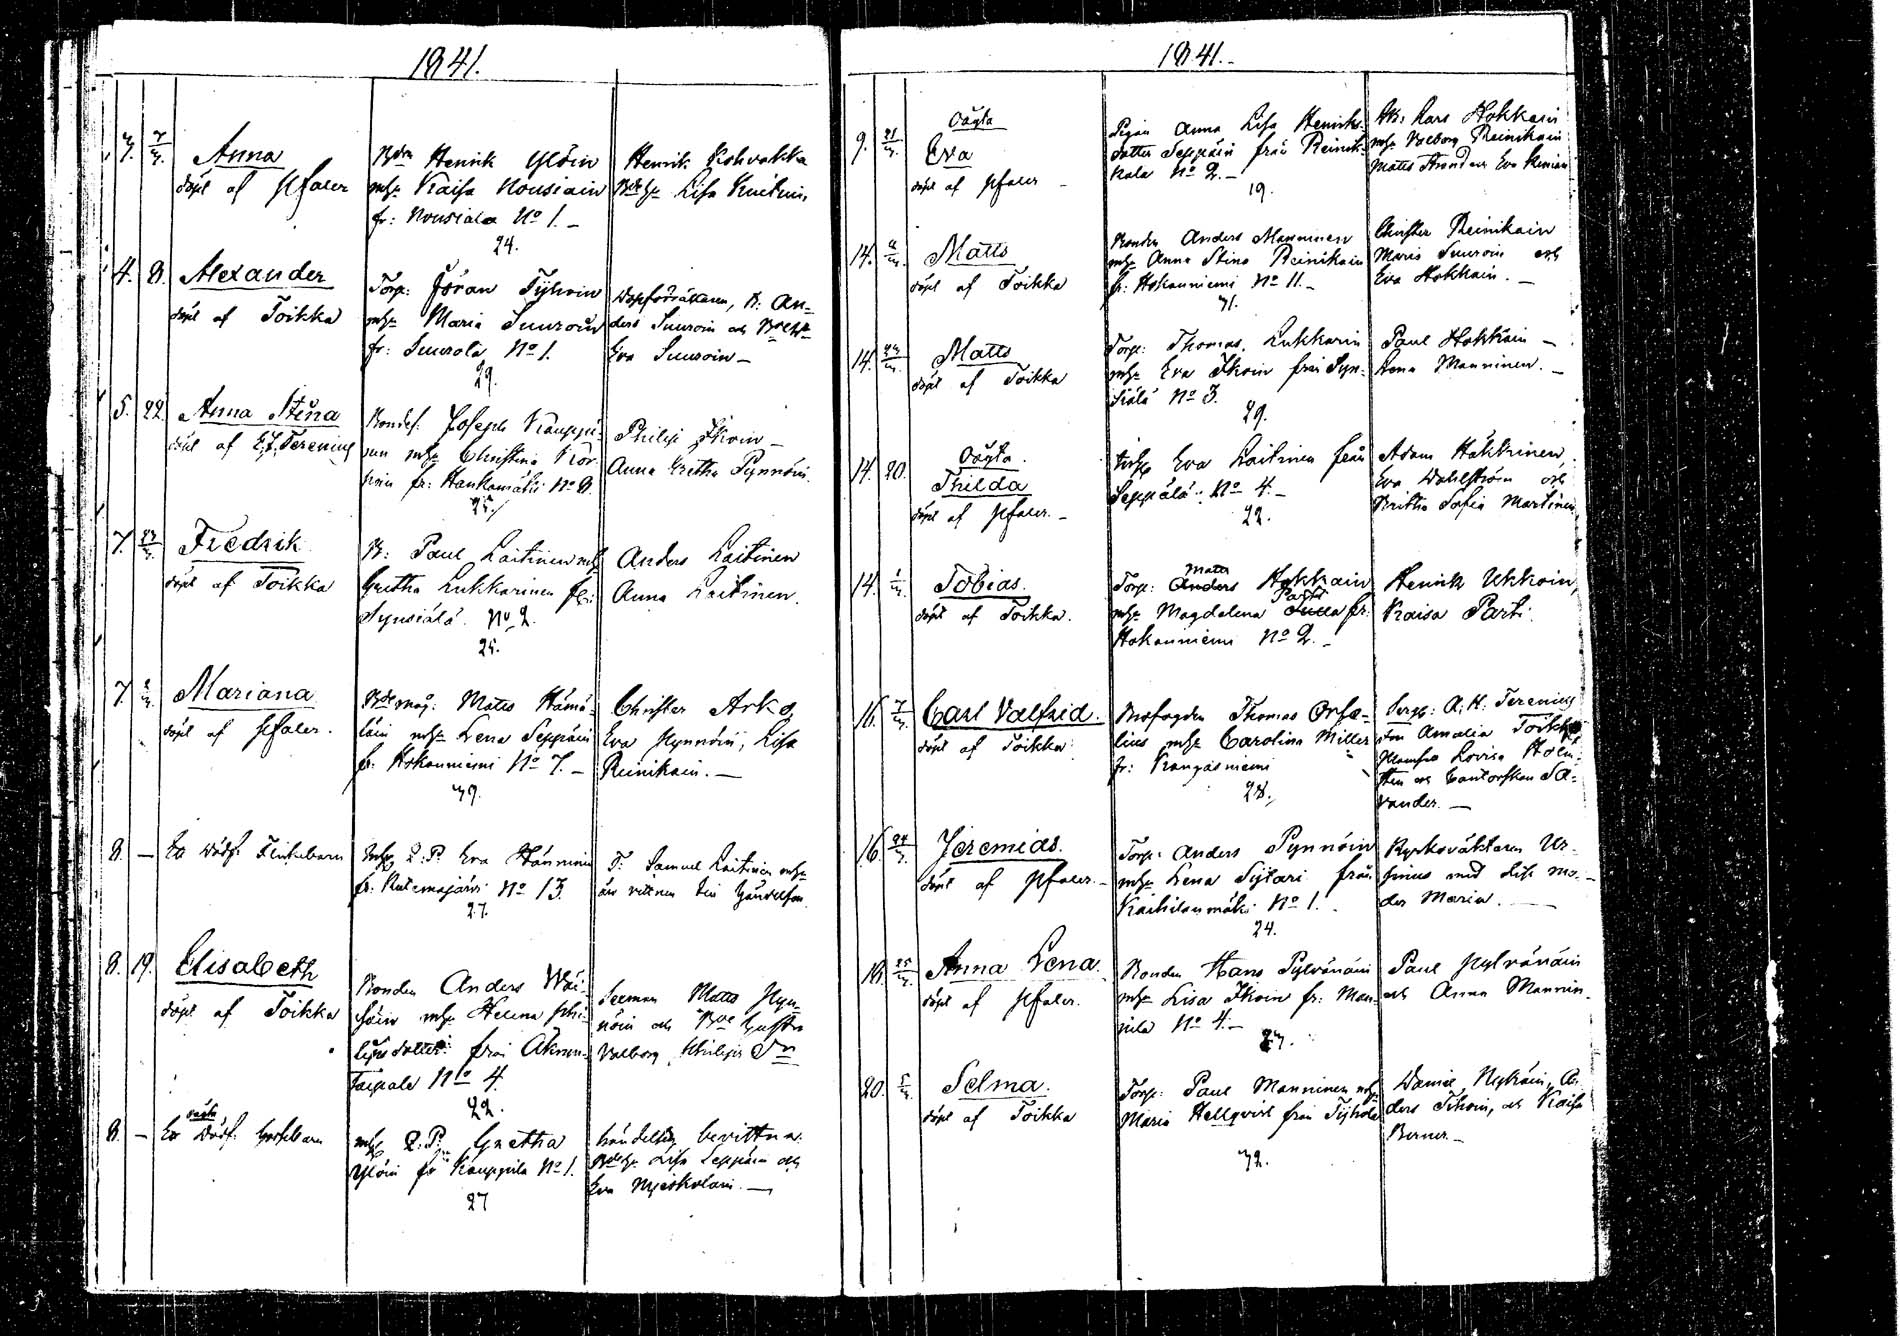 1841.
3. 7/3. Anna
döpt af Pfaler
Bdn Henrik Ylöin
mh. Kaisa Nousiain
fr: Nousiala No 1. –
24.
Henrik Kohvakka
Lisa
4. 8. Alexander
döpt af Toikka
Torp: Jöran Tyhvin
mh. Maria Suuroin
fr: Suurola No 1.
29.
B: An-
ders Suuroin och
Eva Suuroin –
5. 22. Anna Stina
döpt af Terenius
Bondes: Joseph Kauppi-
nen mh. Christina Kor-
fr: Hankamäki No 8.
25.
Philip Ikoin –
Anna Gretha Pynnöin.
7. Fredrik
döpt af Toikka
B: Paul Laitinen mh.
Gretha Lukkarinen fr:
Synsiälä No 2.
25.
Anders Laitinen
Anna Laitinen.
7. Mariana
döpt af Pfaler.
måg: Matts Hämä-
läin mh. Lena Seppäin
fr: Hokanniemi No 7. –
39.
Christer Arko,
Eva Pynnöin, Lisa
Reinikain. –
8. – Ett dödf: Flickebarn
Q: P: Eva Hänninin
fr: Kutemajärvi No 13.
27.
T: Samuel Laitinen mh.
än vittnen till händelsen.
8. 19. Elisabeth
döpt af Toikka
Bonden Anders Väi-
säin mh. Helena Phi-
lipsdotter från Äkrun-
taipale No 4.
22.
Matts Pyn-
nöin och
Valborg Philips Dr
8. – oägta
Ett dödf: Gossebarn
Q: P: Gretha
Ylöin fr Kauppila No 1.
27
händelsen bevittna
Lisa Seppäin och
Eva –
1841. –
9. 21/3. Oägta
Eva
döpt af Pfaler –
Pigan Anna Lisa Henriks-
dotter Seppäin från Reini-
kala No 2. –
19.
Lars Hokkain
mh. Valborg Reinikain
Matts och Eva
14. Matts
döpt af Toikka
Bonden Anders Manninen
mh. Anna Stina Reinikain
fr: Hokanniemi No 11. –
31.
Christer Reinikain
Maria Suuroin och
Eva Hokkain. –
14. Matts
döpt af Toikka
Torp: Thomas Lukkarin
mh. Eva Ikoin från Syn-
siälä No 3.
29.
Paul Hokkain –
Lena Manninen. –
14. 20. Oägta.
Thilda
döpt af Pfaler. –
Eva Laitinen från
Seppälä No 4. –
22.
Adam Häkkinen,
Eva Wahlström och
Britha Sofia Martinen
14. 1/3. Tobias.
döpt af Toikka.
Matts
Torp: Anders Hokkain
Parti
mh. Magdalena fr:
Hokanniemi No 2. –
Henrik Ukkoin,
Kaisa Parti.
16. 7/3. Carl Valfrid.
döpt af Toikka
Thomas Orfæ-
lius mh. Carolina Miller
fr: Kangasniemi
28.
Serg: A: H: Terenius
Fru Amalia Toikka
Mamsel Lovisa Holm-
sten och Cantorskan Sa-
vander. –
16. 24/3. Jeremias.
döpt af Pfaler. –
Torp: Anders Pynnöin
mh. Lena Sijtari från
Kaihilanmäki No 1.
24.
Kyrkoväktaren Ur-
sinus med dess mo-
der Maria. –
18. 25/3. Anna Lena.
döpt af Pfaler.
Bonden Hans Pylvänäin
mh. Lisa Ikoin fr: Man-
nila No 4. –
27.
Paul Pylvänäin
och Anna Mannin.
20. 5/3. Selma.
döpt af Toikka
Torp: Paul Manninen mh.
Maria Hellqvist från Tyhola
32.
Daniel Nykäin, An-
ders Tikain, och Kaisa
Berner. –